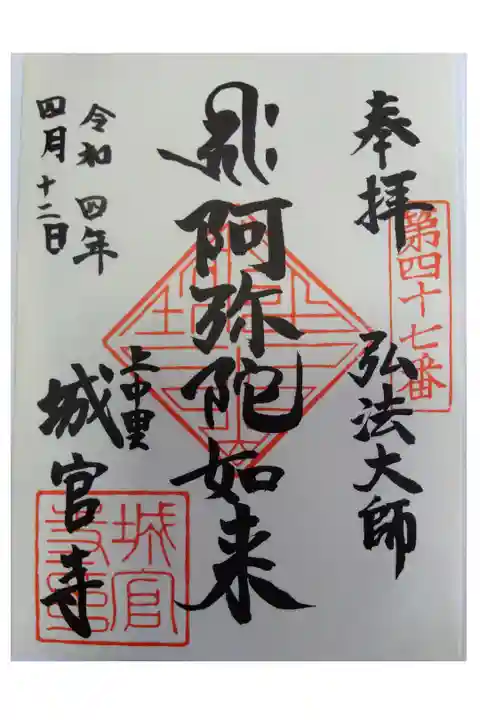 奉拝
第四十七番
弘法大師
阿弥陀如来
上中里
城官寺
令和四年
四月十二日